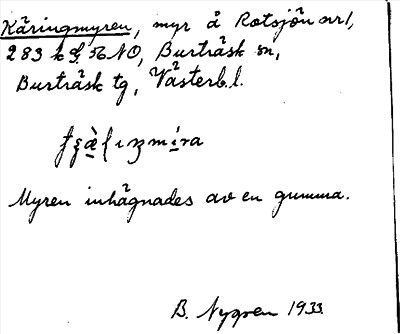 Käringmyren, myr å Rotsjön nr 1,
283 k S. 56 NO, Burträsk sn,
Burträsk tg, Västerb. l.
Myren inhägnades av en gumma.
B. Nygren 1933.